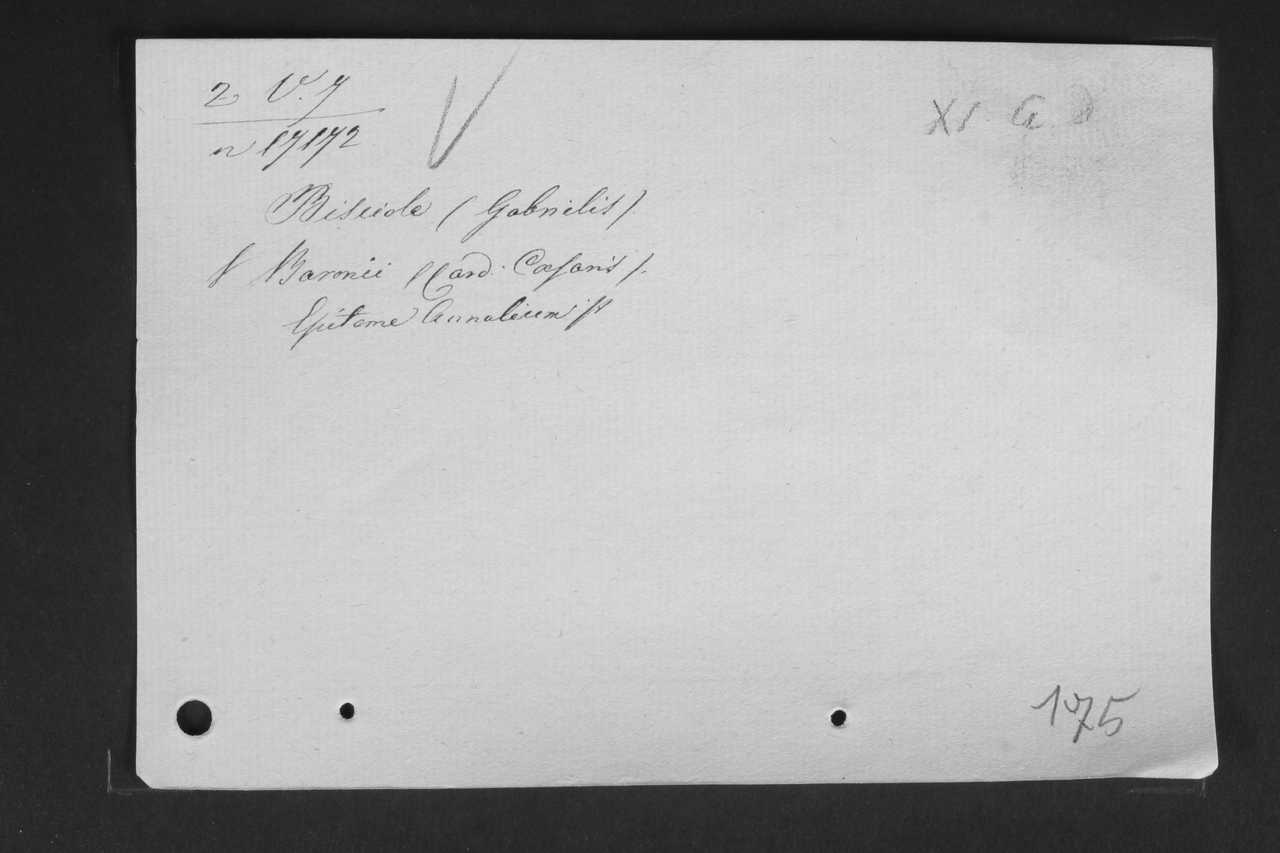 2 V. 7
XI G
n 17172
Bisciole (Gabrielis).
V Baronii (Card. Cæsaris).
Epitome Annalium
175